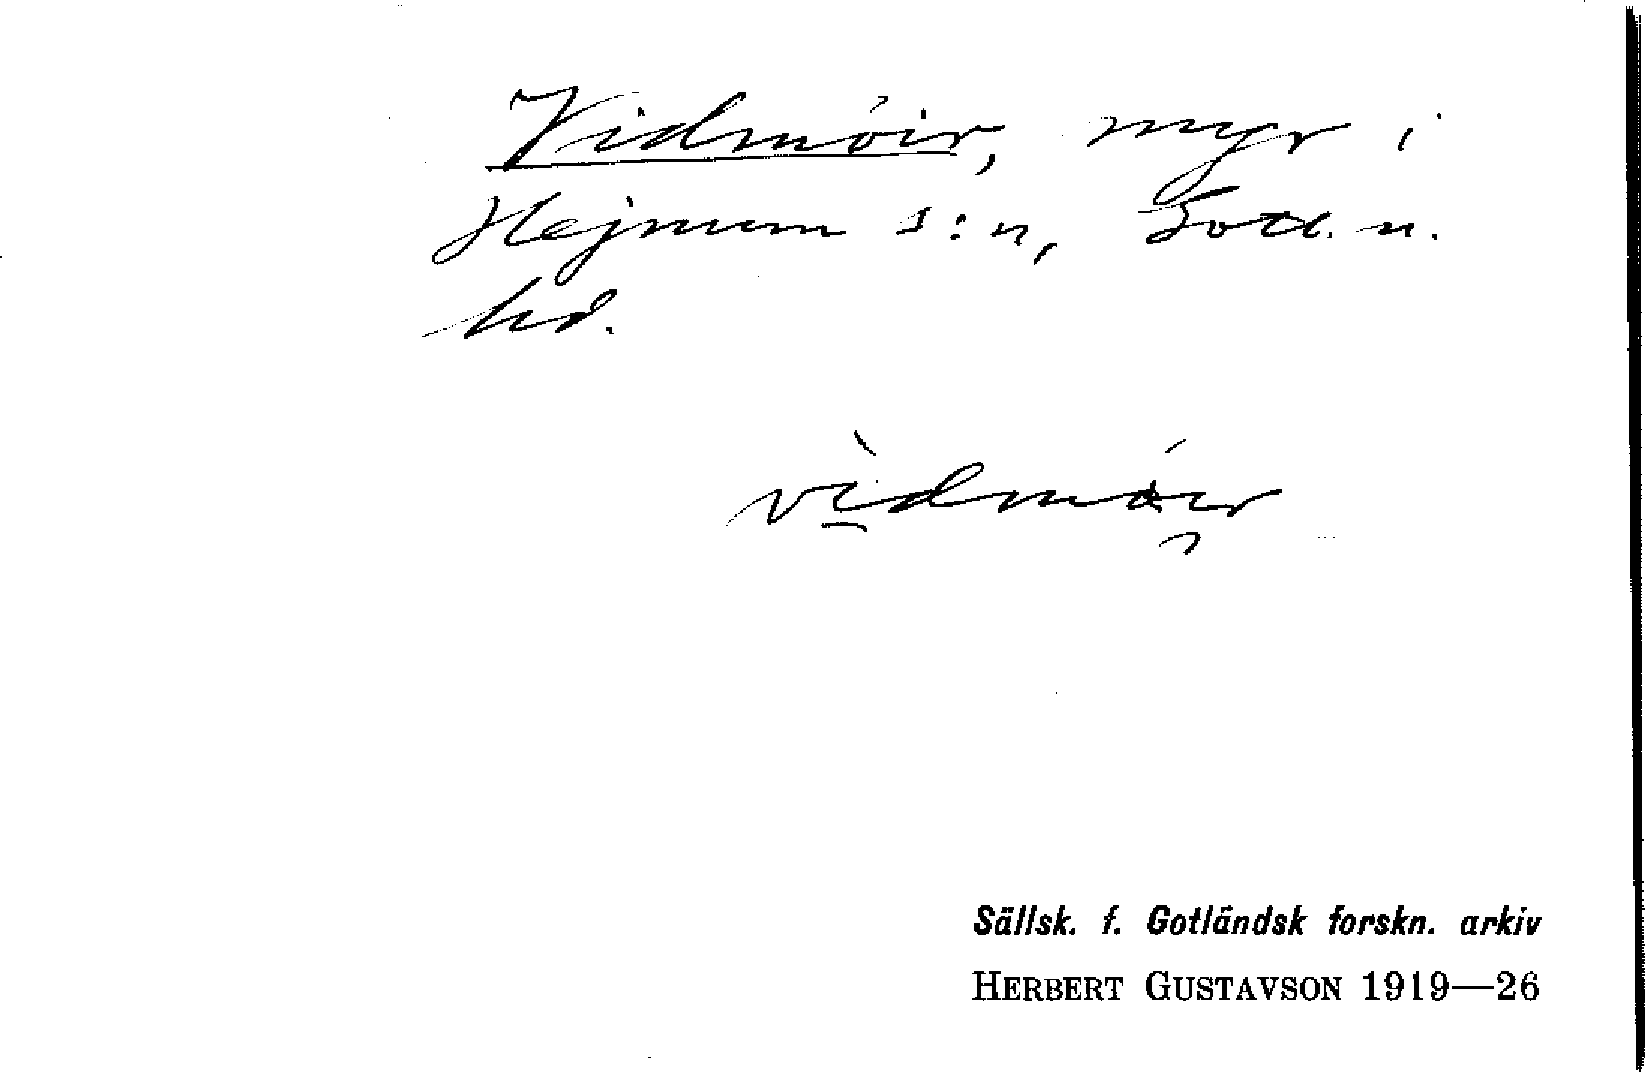 Vidmóir, myr i
Hejnum s:n, Gotl. n.
hd.
vìdmóir
Sällsk. f. Gotländsk forskn. arkiv
HERBERT GUSTAVSON 1919—26